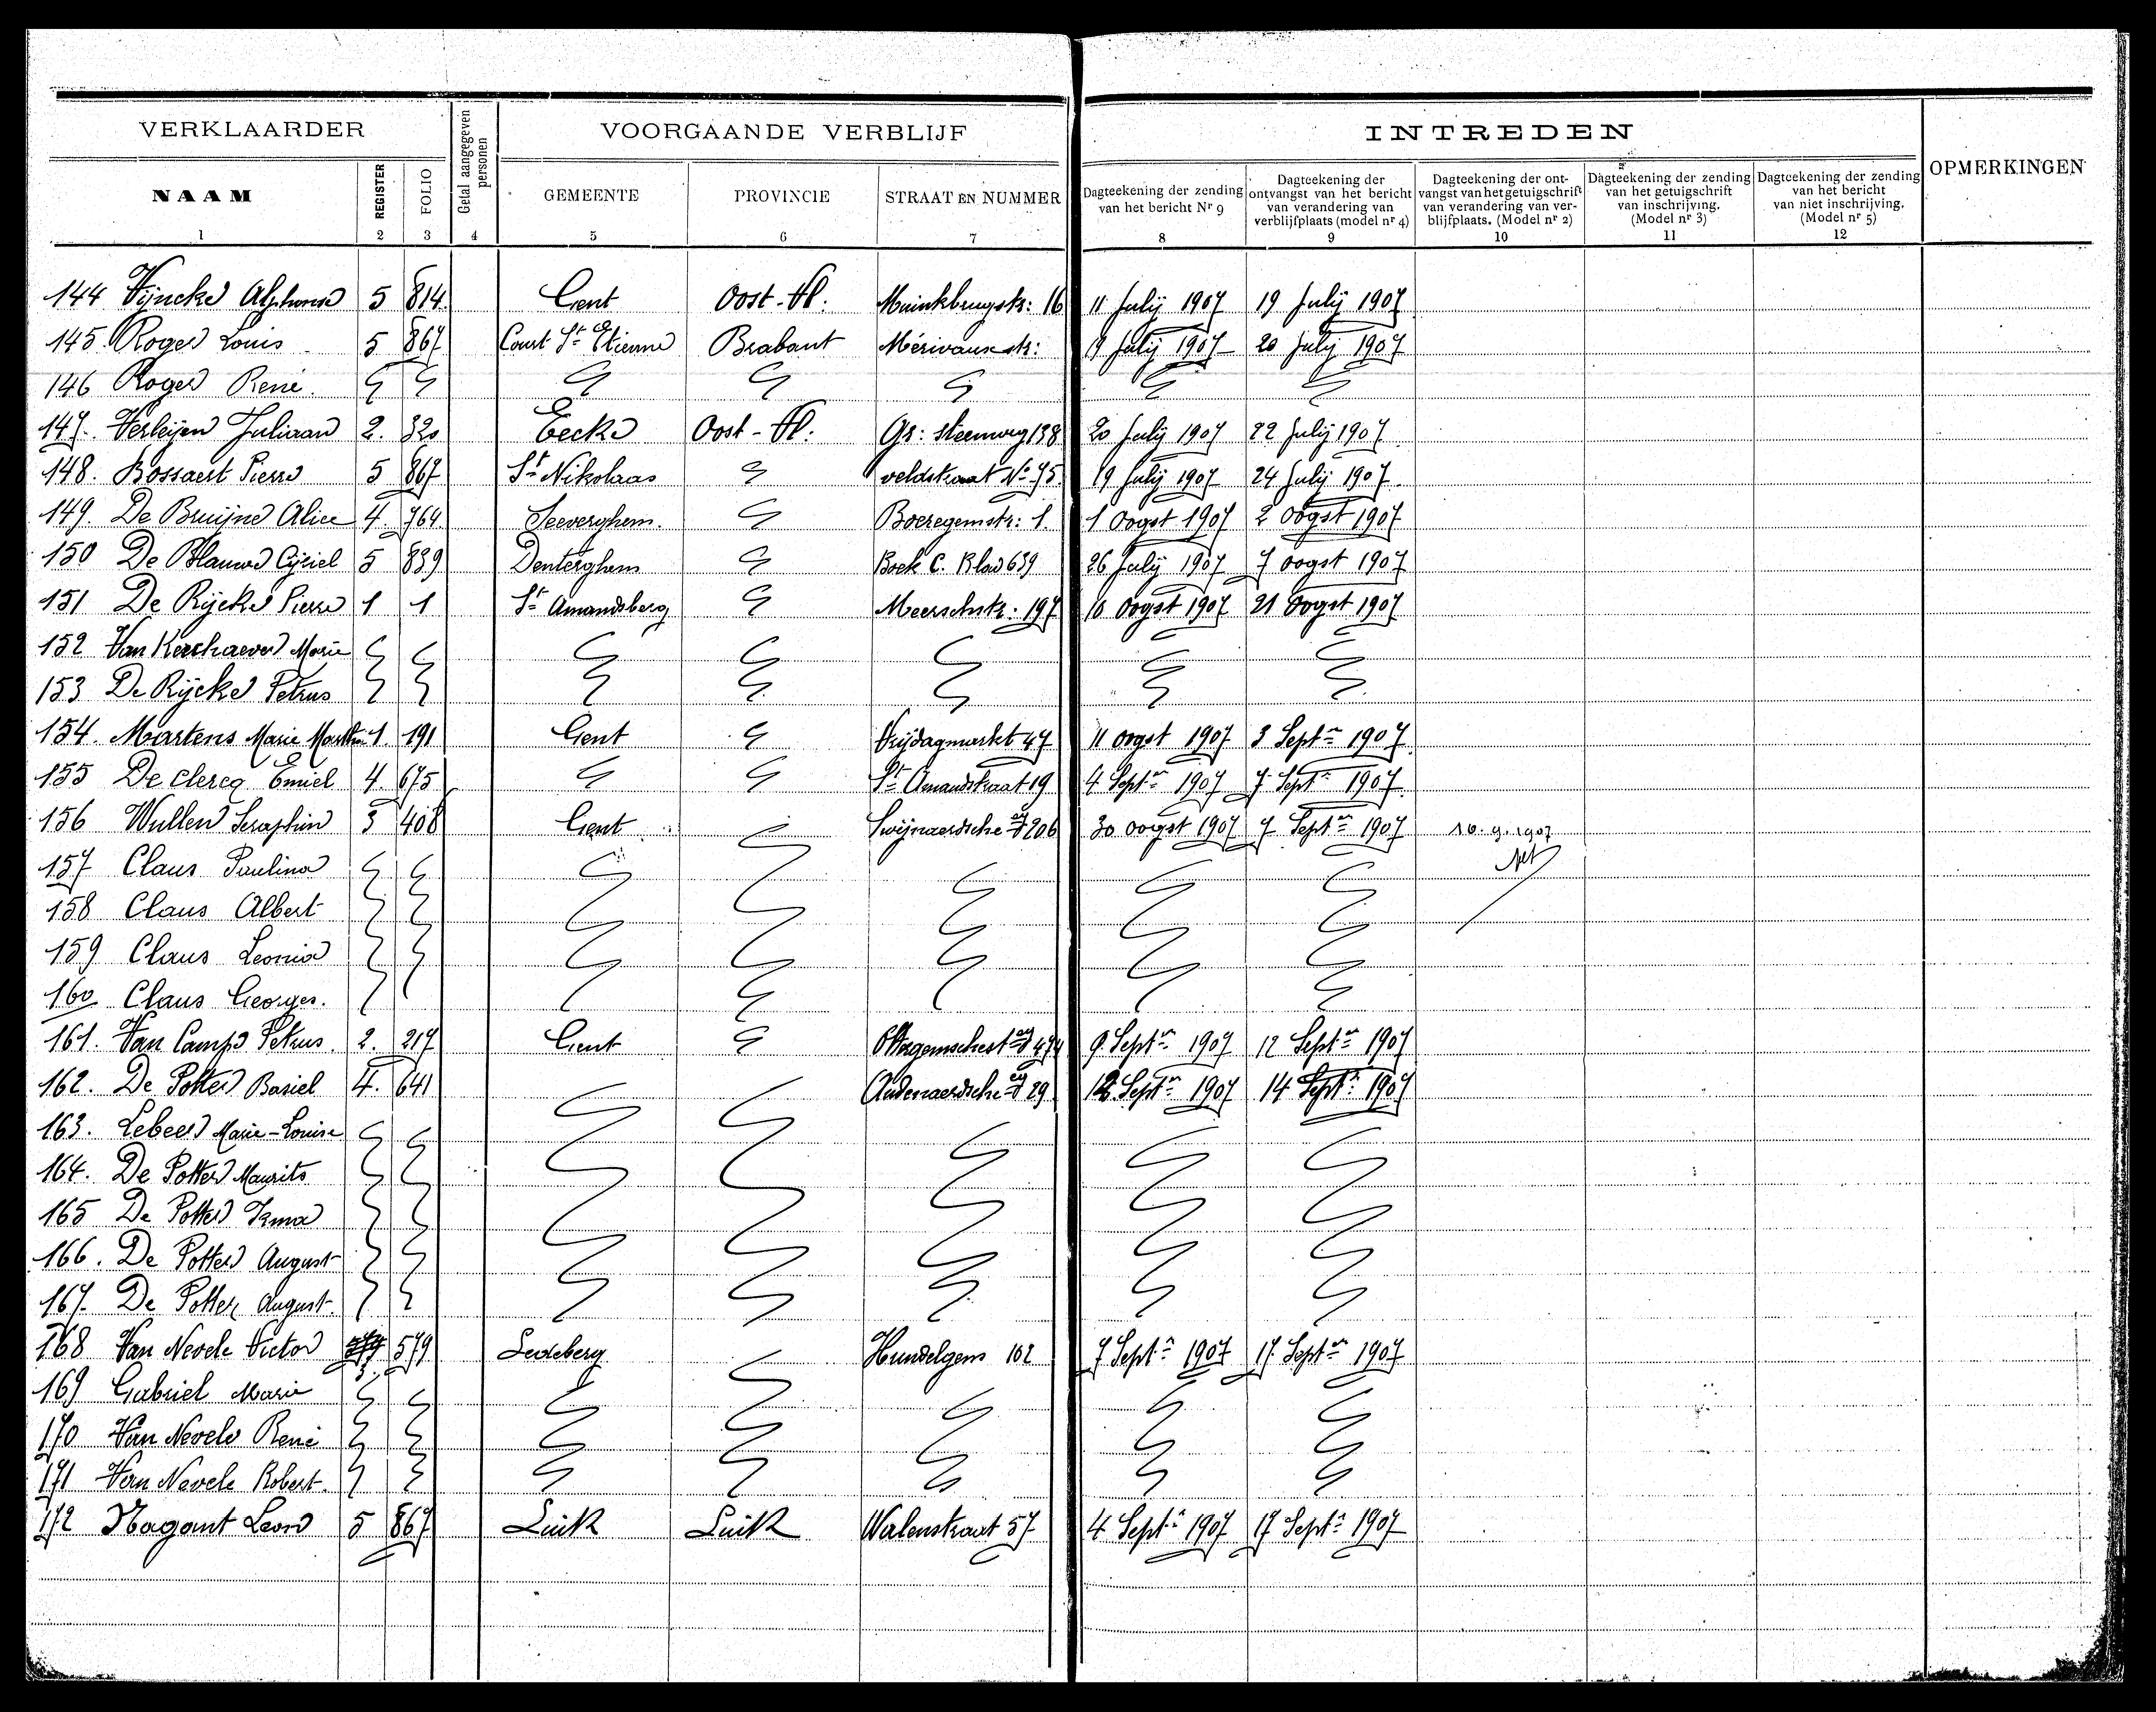 VERKLAARDER
Getal aangegeven personen
VOORGAANDE VERBLIJF
INTREDEN
OPMERKINGEN
NAAM REGISTER FOLIO GEMEENTE PROVINCIE STRAAT EN NUMMER
Dagteekening der zending van het bericht Nr 9
Dagteekening der ontvangst van het bericht van verandering van verblijfplaats (model nr 4)
Dagteekening der ontvangst van het getuigschrift van verandering van verblijfplaats. (Model nr 2)
Dagteekening der zending van het getuigschrift van inschrijving. (Model nr 3)
Dagteekening der zending van het bericht van niet inschrijving. (Model nr 5)
1 2 3 4 5 6 7 8 9 10 11 12
144 Vijncke Alphonse 5 814 Gent Oost-Vl: Muinkbrugstr: 16 11 Julij 1907 19 Julij 1907
145. Roger Louis 5 867 Court St Etienne Brabant Mérivauxstr: 19 Julij 1907 20 Julij 1907
146 Roger René.
147. Verleijen Juliaan 2. 320 Eecke Oost-Vl: Gr: steenweg 138 20 Julij 1907 22 Julij 1907
148. Bossaert Pierre 5 867 St Nikolaas veldstraat No 75 19 Julij 1907 24 Julij 1907.
149. De Bruijne Alice 4. 764 Seeverghem. Boeregemstr: 1. 1 Oogst 1907 2 Oogst 1907
150 De Blauwe Cijriel 5 839 Denterghem Boek C. Blad 639 26 Julij 1907 7 Oogst 1907
151 De Rijcke Pierre 1 1 St Amandsberg Meerschstr: 197 10 Oogst 1907 21 Oogst 1907
152 Van Kerchaever Marie
153 De Rijcke Petrus
154. Martens Marie 1. 191 Gent Vrijdagmarkt 47 11 oogst 1907 3 Septr 1907
155 De Clercq Emiel 4. 675 St Amandstraat 19 4 Septr 1907 7 Septr 1907
156 Wullen Seraphin 3 408 Gent Swijnaerdsche 206 30 oogst 1907 7 Septr 1907 10.9.1907
157 Claus Paulina
158 Claus Albert
159 Claus Leonia
160 Claus Georges.
161. Van Camp Petrus. 2. 217 Gent 9 Septr 1907 12 Septr 1907
162. De Potter Basiel 4. 641 Audenaerdsche 29 12 Septr 1907 14 Septr 1907
163. Lebeer Marie-Louise
164. De Potter Maurits
165 De Potter Irma
166. De Potter August
167. De Potter August.
168 Van Nevele Victor 3. 579 Ledeberg Hundelgem 102 7 Septr 1907 17. Septr 1907
169 Gabriel Marie
170 Van Nevele René
171 Van Nevele Robert.
172 Nagant Leon 5 867 Luik Luik Walenstraat 57 4 Septr 1907 17 Septr 1907